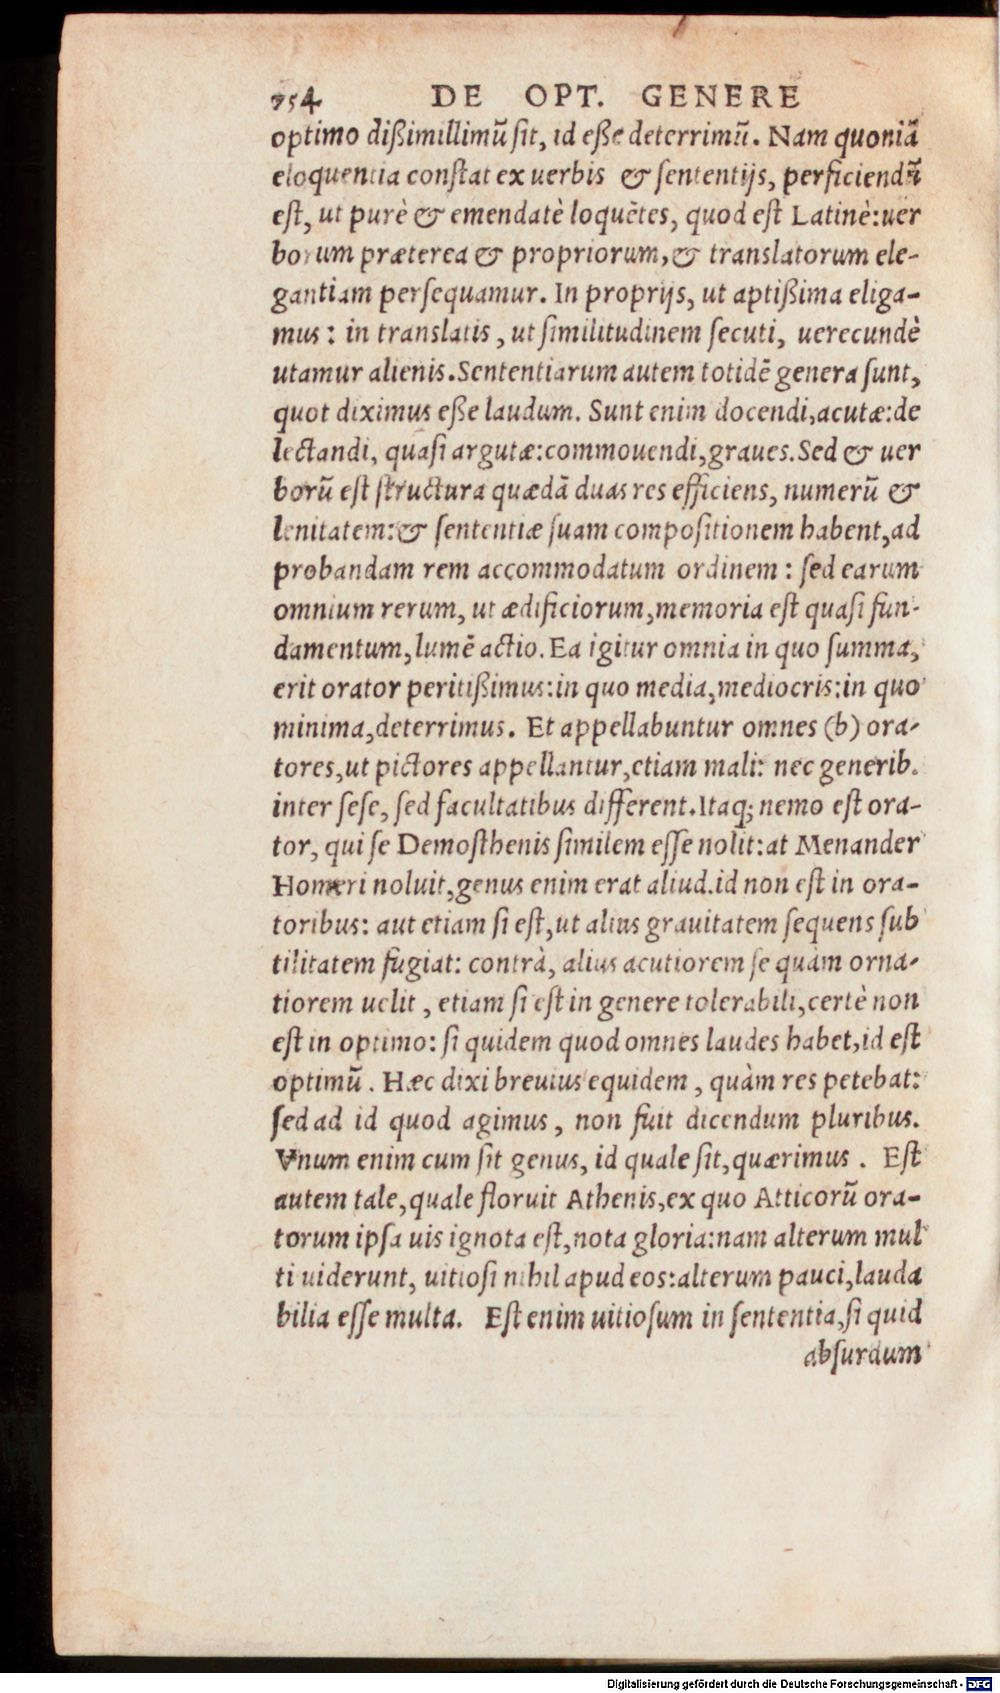 754 DE OPT. GENERE
optimo dißimillimũ sit, id eße deterrimũ. Nam quoniã
eloquentia constat ex uerbis & sententijs, perficiendũ
est, ut purè & emendatè loquẽtes, quod est Latinè:uer
borum præterea & propriorum, & translatorum ele-
gantiam persequamur. In proprijs, ut aptißima eliga-
mus: in translatis, ut similitudinem secuti, uerecundè
utamur alienis. Sententiarum autem totidẽ genera sunt,
quot diximus eße laudum. Sunt enim docendi, acutæ: de
lectandi, quasi argutæ: commouendi, graues. Sed & uer
borũ est structura quædã duas res efficiens, numerũ &
lenitatem: & sententiæ suam compositionem habent, ad
probandam rem accommodatum ordinem: sed earum
omnium rerum, ut ædificiorum, memoria est quasi fun-
damentum, lumẽ actio. Ea igitur omnia in quo summa,
erit orator peritißimus: in quo media, mediocris: in quo
minima, deterrimus. Et appellabuntur omnes (b) ora-
tores, ut pictores appellantur, etiam mali: nec generib.
inter sese, sed facultatibus different. Itaq; nemo est ora-
tor, qui se Demosthenis similem esse nolit: at Menander
Homeri noluit, genus enim erat aliud. id non est in ora-
toribus: aut etiam si est, ut alius grauitatem sequens sub
tilitatem fugiat: contrà, alius acutiorem se quàm orna-
tiorem uelit, etiam si est in genere tolerabili, certè non
est in optimo: si quidem quod omnes laudes habet, id est
optimũ. Hæc dixi breuius equidem, quàm res petebat:
sed ad id quod agimus, non fuit dicendum pluribus.
Vnum enim cum sit genus, id quale sit, quærimus. Est
autem tale, quale floruit Athenis, ex quo Atticorũ ora-
torum ipsa uis ignota est, nota gloria: nam alterum mul
ti uiderunt, uitiosi nihil apud eos: alterum pauci, lauda
bilia esse multa. Est enim uitiosum in sententia, si quid
absurdum
Digitalisierung gefördert durch die Deutsche Forschungsgemeinschaft - DFG